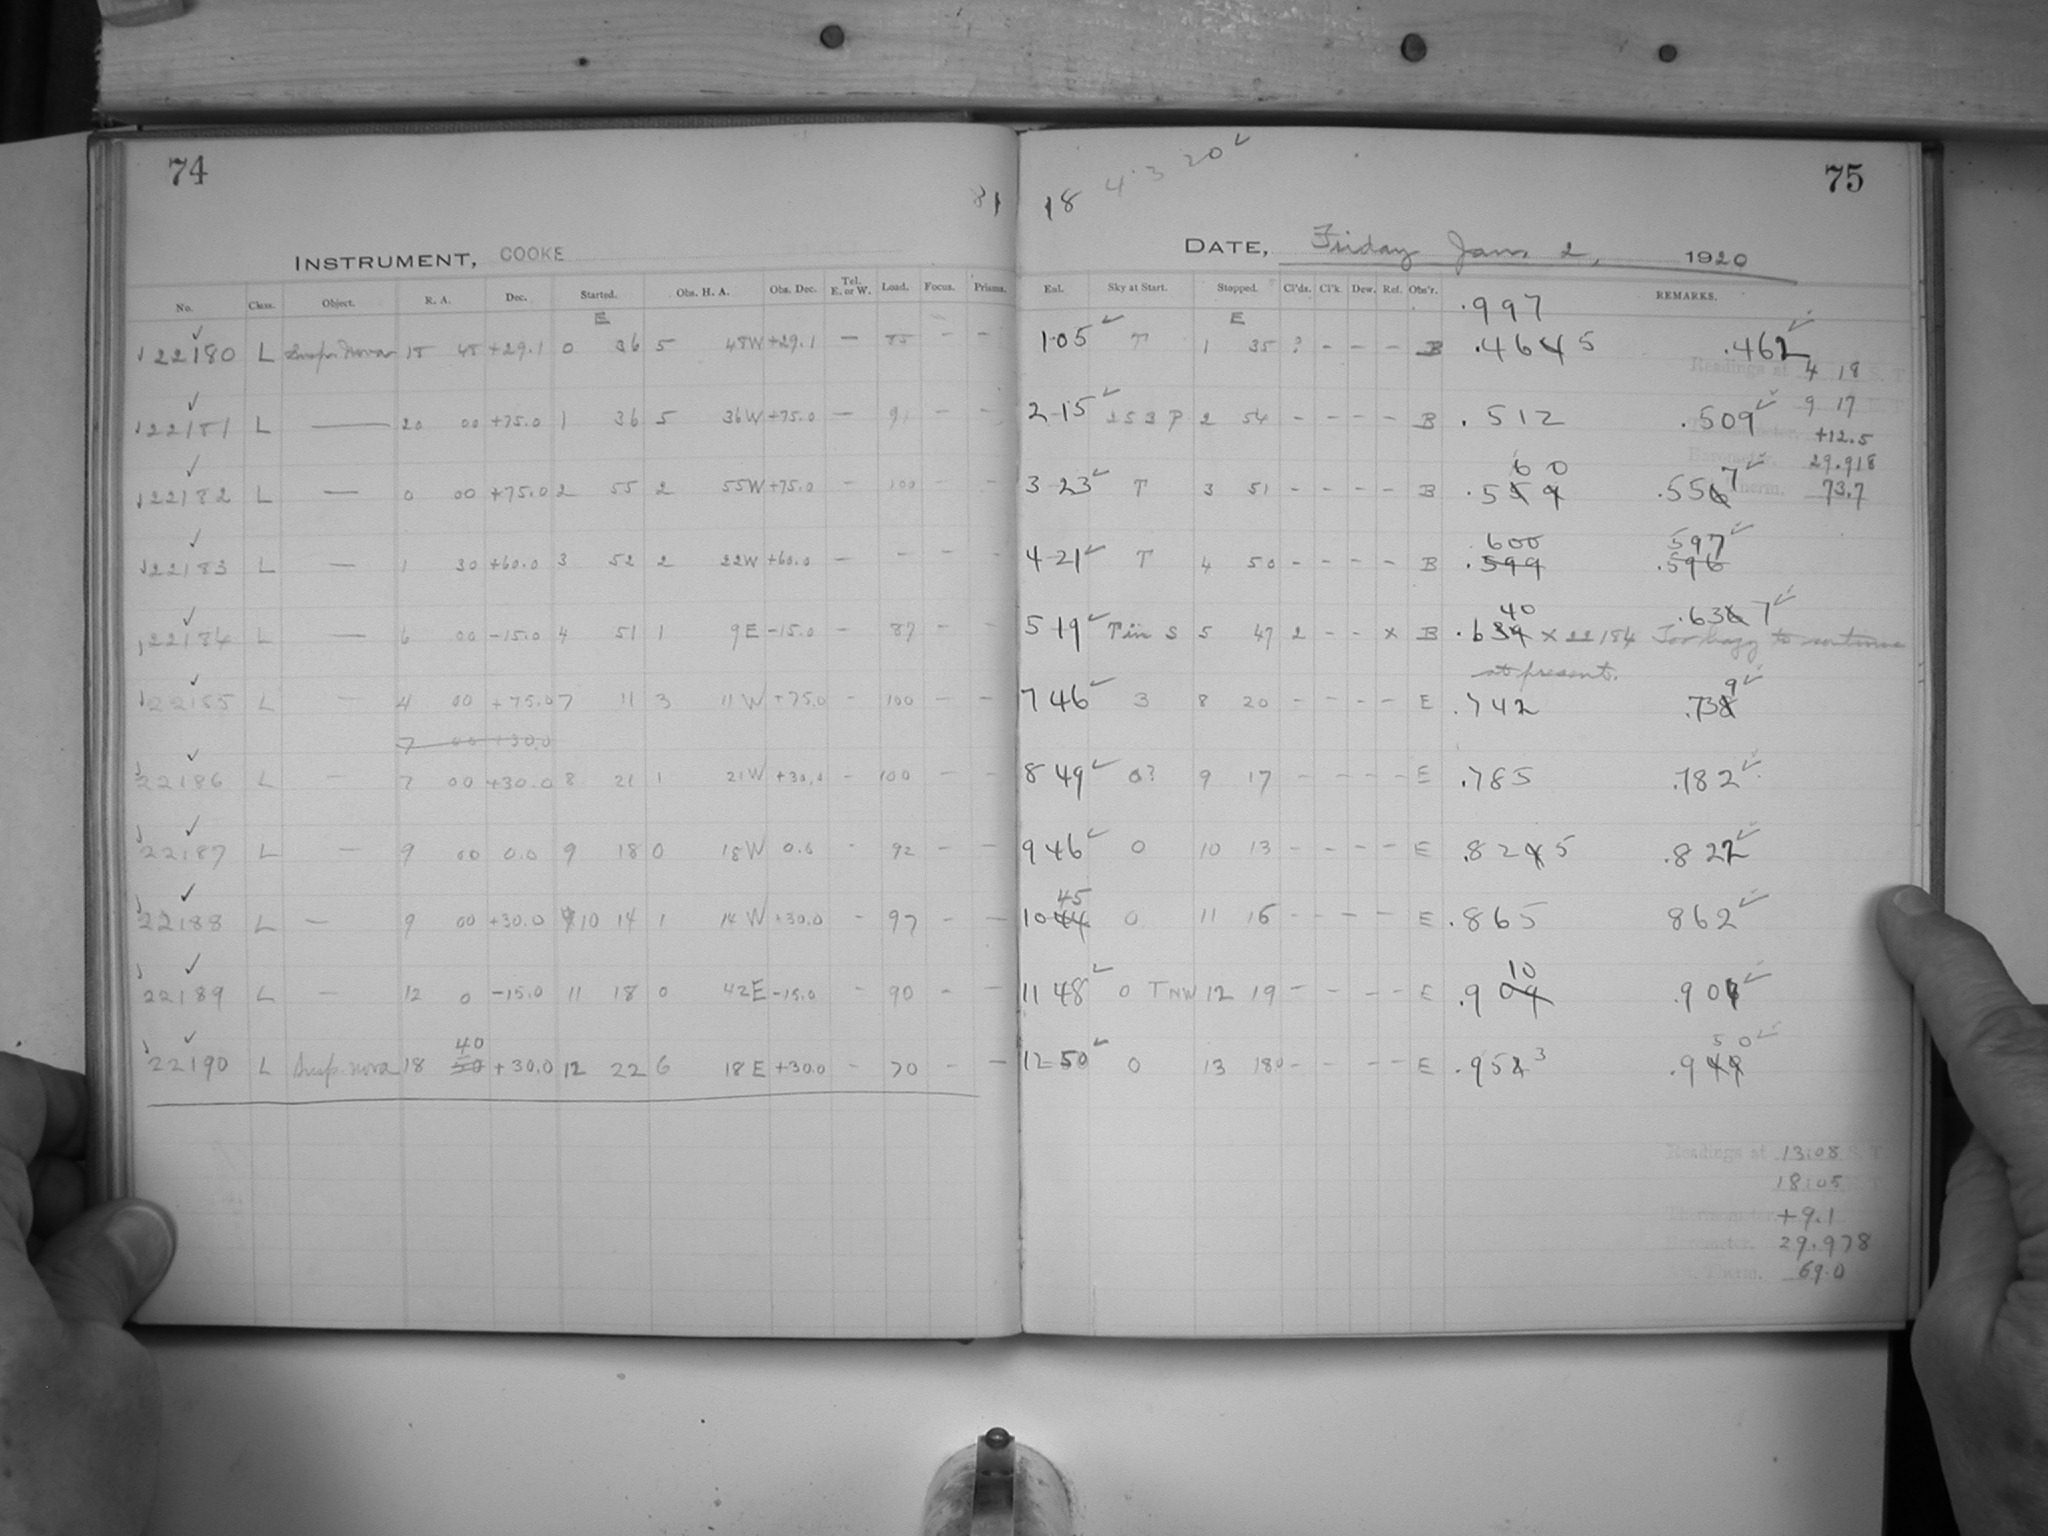 74
81
INSTRUMENT, COOKE
No. Class. Object. R. A. Dec. Started. Obs. H. A. Obs. Dec. Tel. E. or W. Load. Focus. Prisms.
E
22180 L 18 45 +29.1 0 36 5 48W +29.1 — 85 — —
22181 L — 20 00 +75.0 1 36 5 36W +75.0 — 91 — —
22182 L — 0 00 +75.0 2 55 2 55W +75.0 — 100 — —
22183 L — 1 30 +60.0 3 52 2 22W +60.0 — — — —
22184 L — 6 00 -15.0 4 51 1 9E -15.0 — 87 — —
22185 L — 4 00 +75.0 7 11 3 11W +75.0 — 100 — —
7 00 +30.0
22186 L — 7 00 +30.0 8 21 1 21W +30.0 — 100 — —
22187 L — 9 00 0.0 9 18 0 18W 0.0 — 92 — —
22188 L — 9 00 +30.0 10 14 1 14W +30.0 — 97 — —
22189 L — 12 0 -15.0 11 18 0 42E -15.0 — 90 — —
40
22190 L nova 18 50 +30.0 12 22 6 18E +30.0 — 70 — —
75
18 4.3 20
DATE, Friday Jan. 2, 1920
Eal. Sky at Start. Stopped. Cl'ds. Cl'k. Dew. Ref. Obs'r. REMARKS.
.997
E
1 05 T 1 35 ? - - - B .4645 .462
Readings at 4 18 S. T.
2 15 2 S 3 P 2 54 - - - - B .512 .509
9 17
+12.5
Barometer, 29.918
60 7
3 23 T 3 51 - - - - B .559 .556
Therm. 73.7
600 597
4 21 T 4 50 - - - - B .599 .596
40 .636 7
5 19 T in S 5 47 2 - - x B .639 x 22184 Too hazy to continue
at present.
9
7 46 3 8 20 - - - - E .742 .738
8 49 0? 9 17 - - - - E .785 .782
9 46 0 10 13 - - - - E .824 5 .822
45
10 44 0 11 16 - - - - E .865 862
10
11 48 0 T NW 12 19 - - - - E .909 .90
50
12 50 0 13 18 - - - - E .952 3 .949
Readings at 13:08 S. T.
18:05
Thermometer, +9.1
Barometer, 29.978
Therm. 69.0